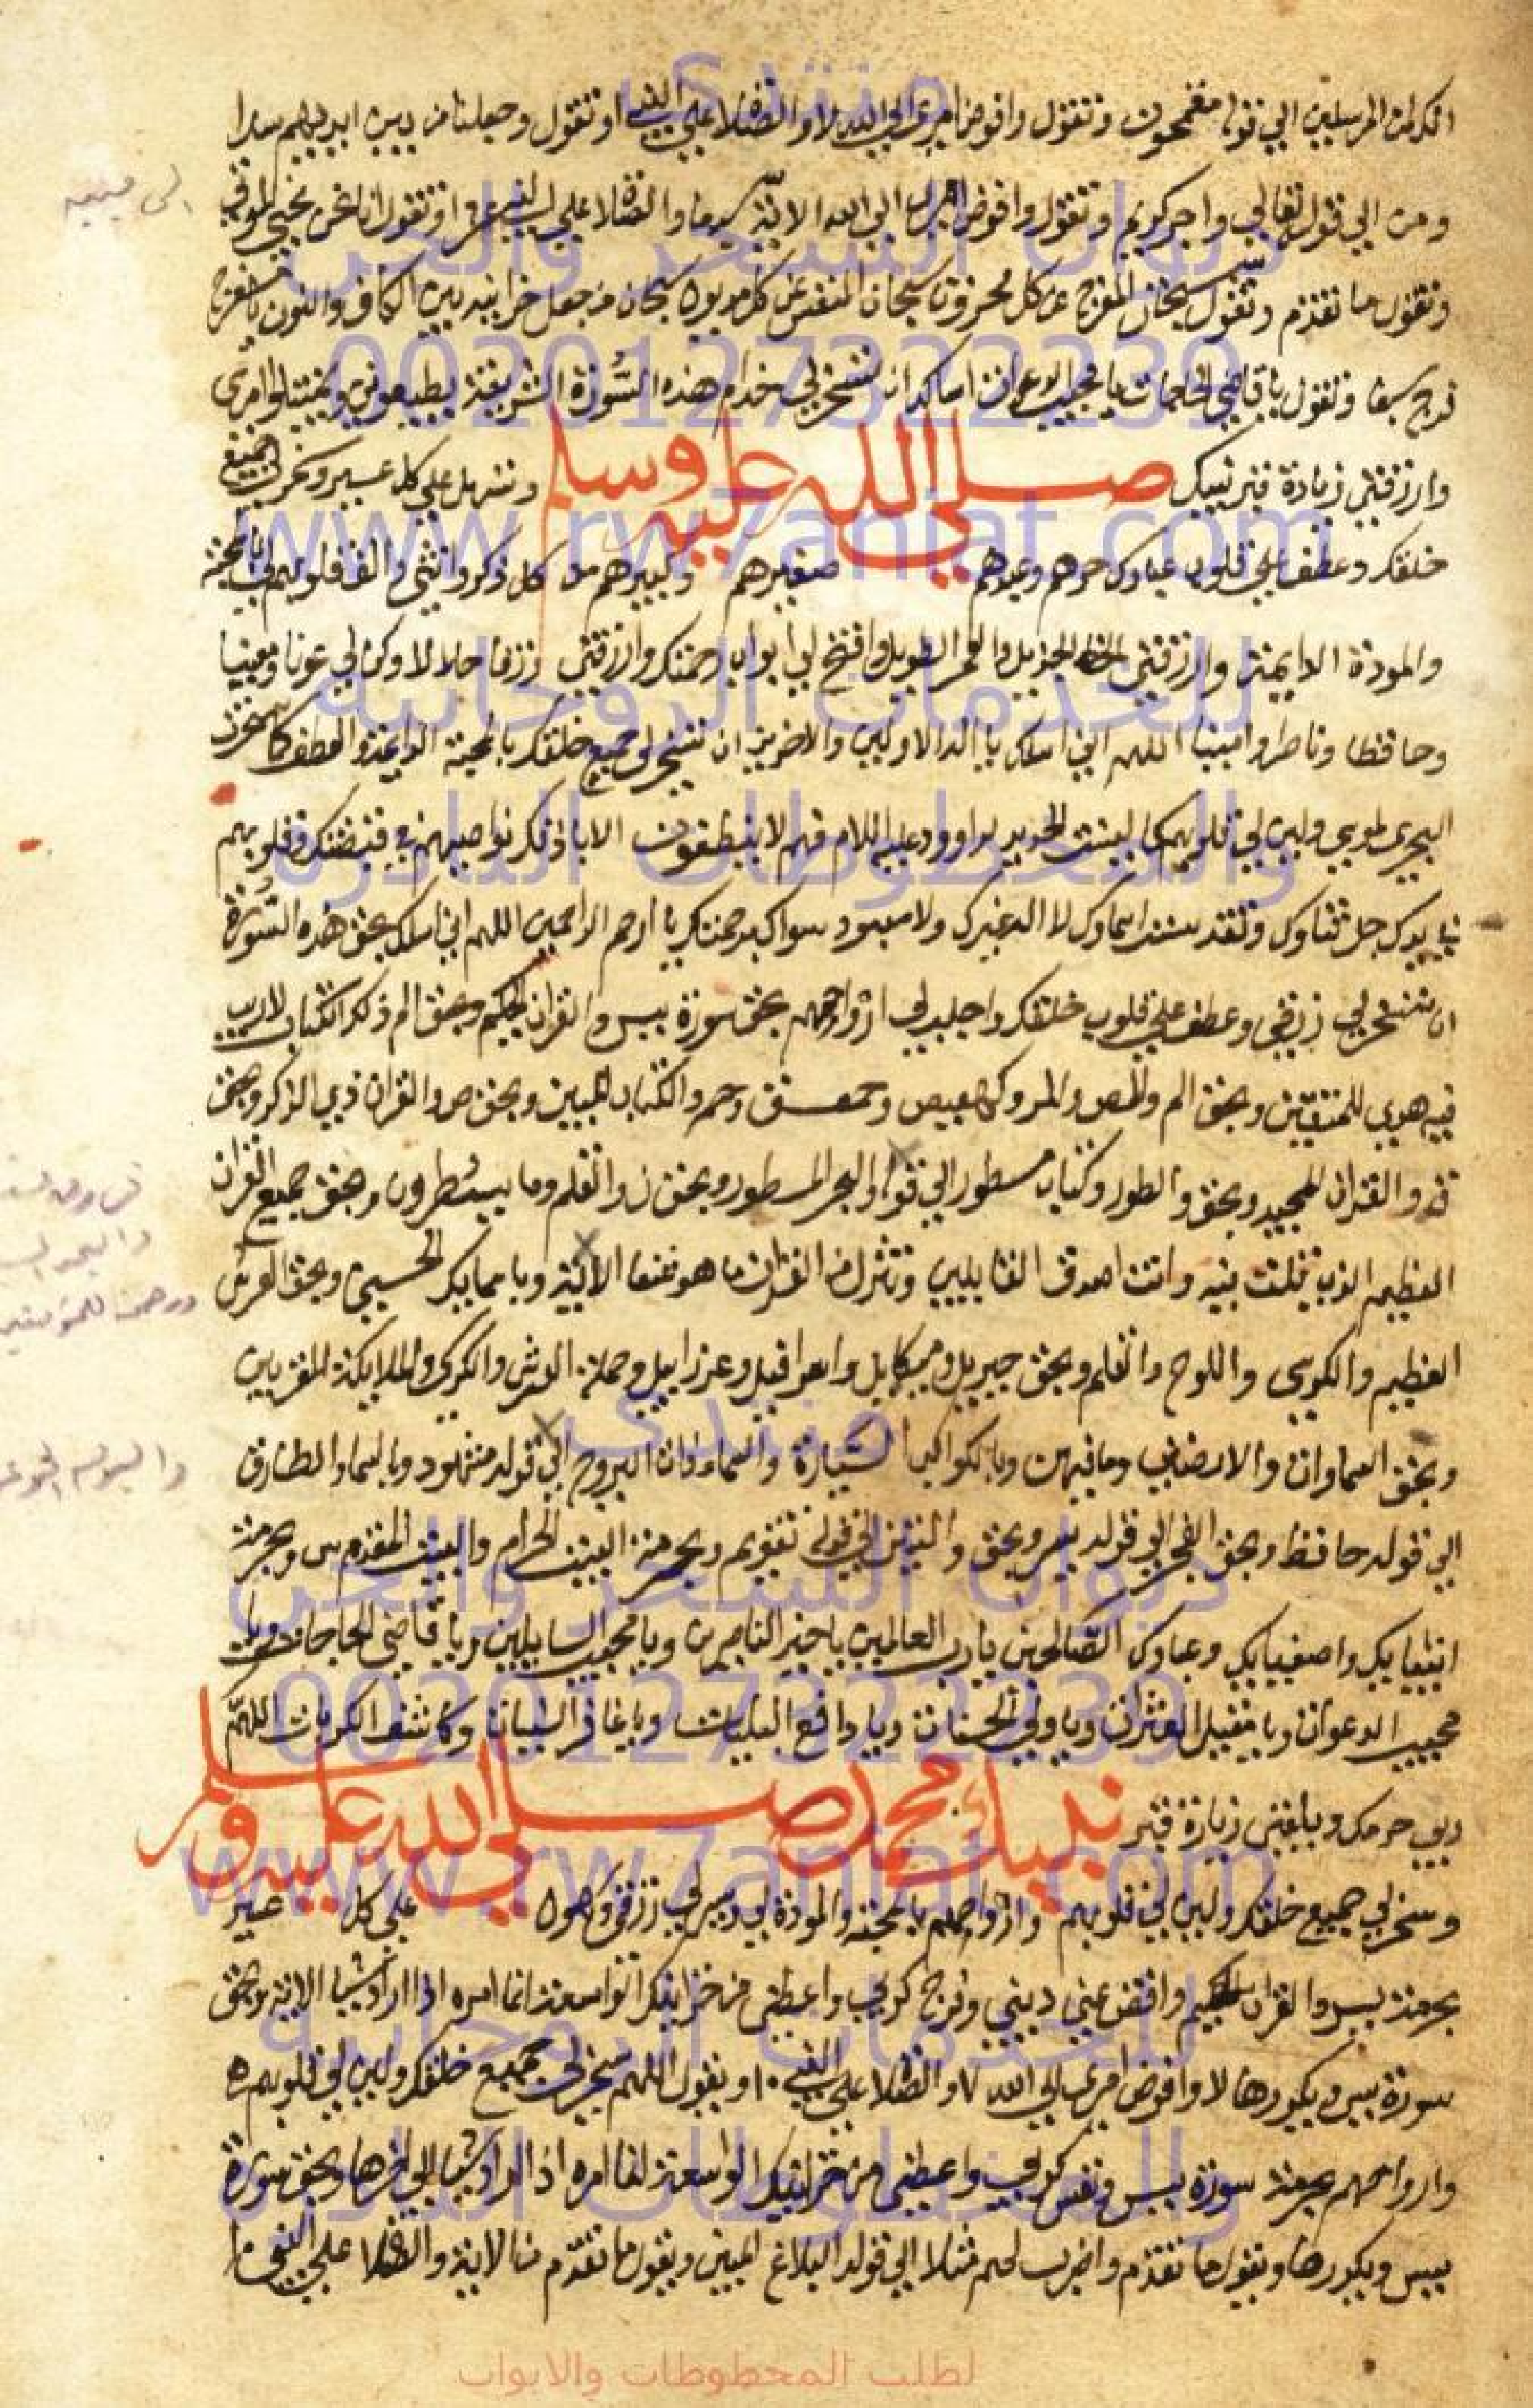 انك لمن المرسلين الي قوله مقمحون وتقول وافوض امري الى الله والصلاة علي النبي او تقول وجعلنا من بين ايديهم سدا
ومن الي قوله تعالي واجر كريم وتقول وافوض امري الي الله الاية والصلاة علي النبي او تقول انا نحن نحيي الموتي
وتقول ما تقدم وتقول سبحان المفرج عن كل محزون سبحان المنفس عن كل مديون سبحان من جعل خزاينه بين الكاف والنون يا مفرج
فرج وتقول يا قاضي الحاجات يا مجيب الدعوات اسالك ان تسخر لي خدام هذه السورة الشريفة يطيعوني ويمتثلوا امري
وارزقني زيارة قبر نبيك صلي الله عليه وسلم وتسهل علي كل عسير وتسخر لي جميع
خلقك وعطف علي قلوب عبادك حرهم وعبدهم صغيرهم وكبيرهم من كل ذكر وانثي والف قلوبهم بالمحبة
والمودة الدايمة وارزقني الحظ الجزيل والعمر الطويل وافتح لي ابواب رحمتك وارزقني رزقا حلالا وكن لي عونا ومعينا
وحافظا وناصرا وامينا اللهم اني اسالك يا اله الاولين والاخرين ان تسخر لي جميع خلقك بالمحبة الدايمة والعطف كما سخرت
البحر لموسي ولين لي قلوبهم كما لينت الحديد لداوود عليه السلام فهم لا ينطقون الا باذنك نواصيهم في قبضتك وقلوبهم
بيدك جل ثناوك وتقدست اسماوك لا اله غيرك ولا معبود سواك برحمتك يا ارحم الراحمين اللهم اني اسالك بحق هذه السورة
ان تسخر لي رزقي وعطف علي قلوب خلقك واجلب لي ارواحهم بحق سورة يس والقران الحكيم وبحق الم ذلك الكتاب لا ريب
فيه هدي للمتقين وبحق الم والمص والمر وكهيعص وحمعسق وحم والكتاب المبين وبحق ص والقران ذي الذكر وبحق
ق والقران المجيد وبحق والطور وكتاب مسطور الي قوله والبحر المسجور وبحق ن والقلم وما يسطرون وبحق جميع القران
العظيم الذي قلت فيه وانت اصدق القايلين وننزل من القران ما هو شفا الاية وباسمايك الحسني وبحق العرش
العظيم والكرسي واللوح والقلم وبحق جبريل وميكايل واسرافيل وعزراييل وحملة العرش والكرسي والملايكة المقربين
وبحق السماوات والارضين وما فيهن وبالكواكب السيارة والسماء ذات البروج الي قوله مشهود وبالسماء والطارق
الي قوله حافظ وبحق الفجر الي قوله يسر وبحق والتين الي قوله تقويم وبحرمة البيت الحرام والبيت المقدس وبحرمة
انبيايك واصفيايك وعبادك الصالحين يا رب العالمين يا خير الناصرين ويا مجيب السايلين ويا قاضي الحاجات ويا
مجيب الدعوات ويا مقيل العثرات ويا ولي الحسنات ويا دافع البليات ويا غافر السيات وكاشف الكربات اللهم
حرمك وبلغني زيارة قبر نبيك محمد صلي الله عليه وسلم
وسخر لي جميع خلقك ولين لي قلوبهم وارواحهم بالمحبة والمودة لي ويسر لي رزقي علي كل عسير
بحرمة يس والقران الحكيم واقض عني ديني وفرج كربي واعطني من خزاينك الواسعة انما امره اذا اراد شيا الاية وبحق
سورة يس ويكررها وافوض امري الي الله ٧ والصلاة علي النبي ١٠ ويقول اللهم سخر لي جميع خلقك ولين لي قلوبهم
وارواحهم بحرمة سورة يس ونفس كربي واعطني من خزاينك الواسعة انما امره اذا اراد شيا الي اخرها وبحق سورة
يس ويكررها ويقول ما تقدم واضرب لهم مثلا الي قوله البلاغ المبين ويقول ما تقدم من الاية والصلاة علي النبي ١٠
منتدى
ديوان السحر والجن
00201273222239
www.rw7aniat.com
للخدمات الروحانية
والمخطوطات النادرة
منتدى
ديوان السحر والجن
00201273222239
www.rw7aniat.com
للخدمات الروحانية
والمخطوطات النادرة
لطلب المخطوطات والابواب